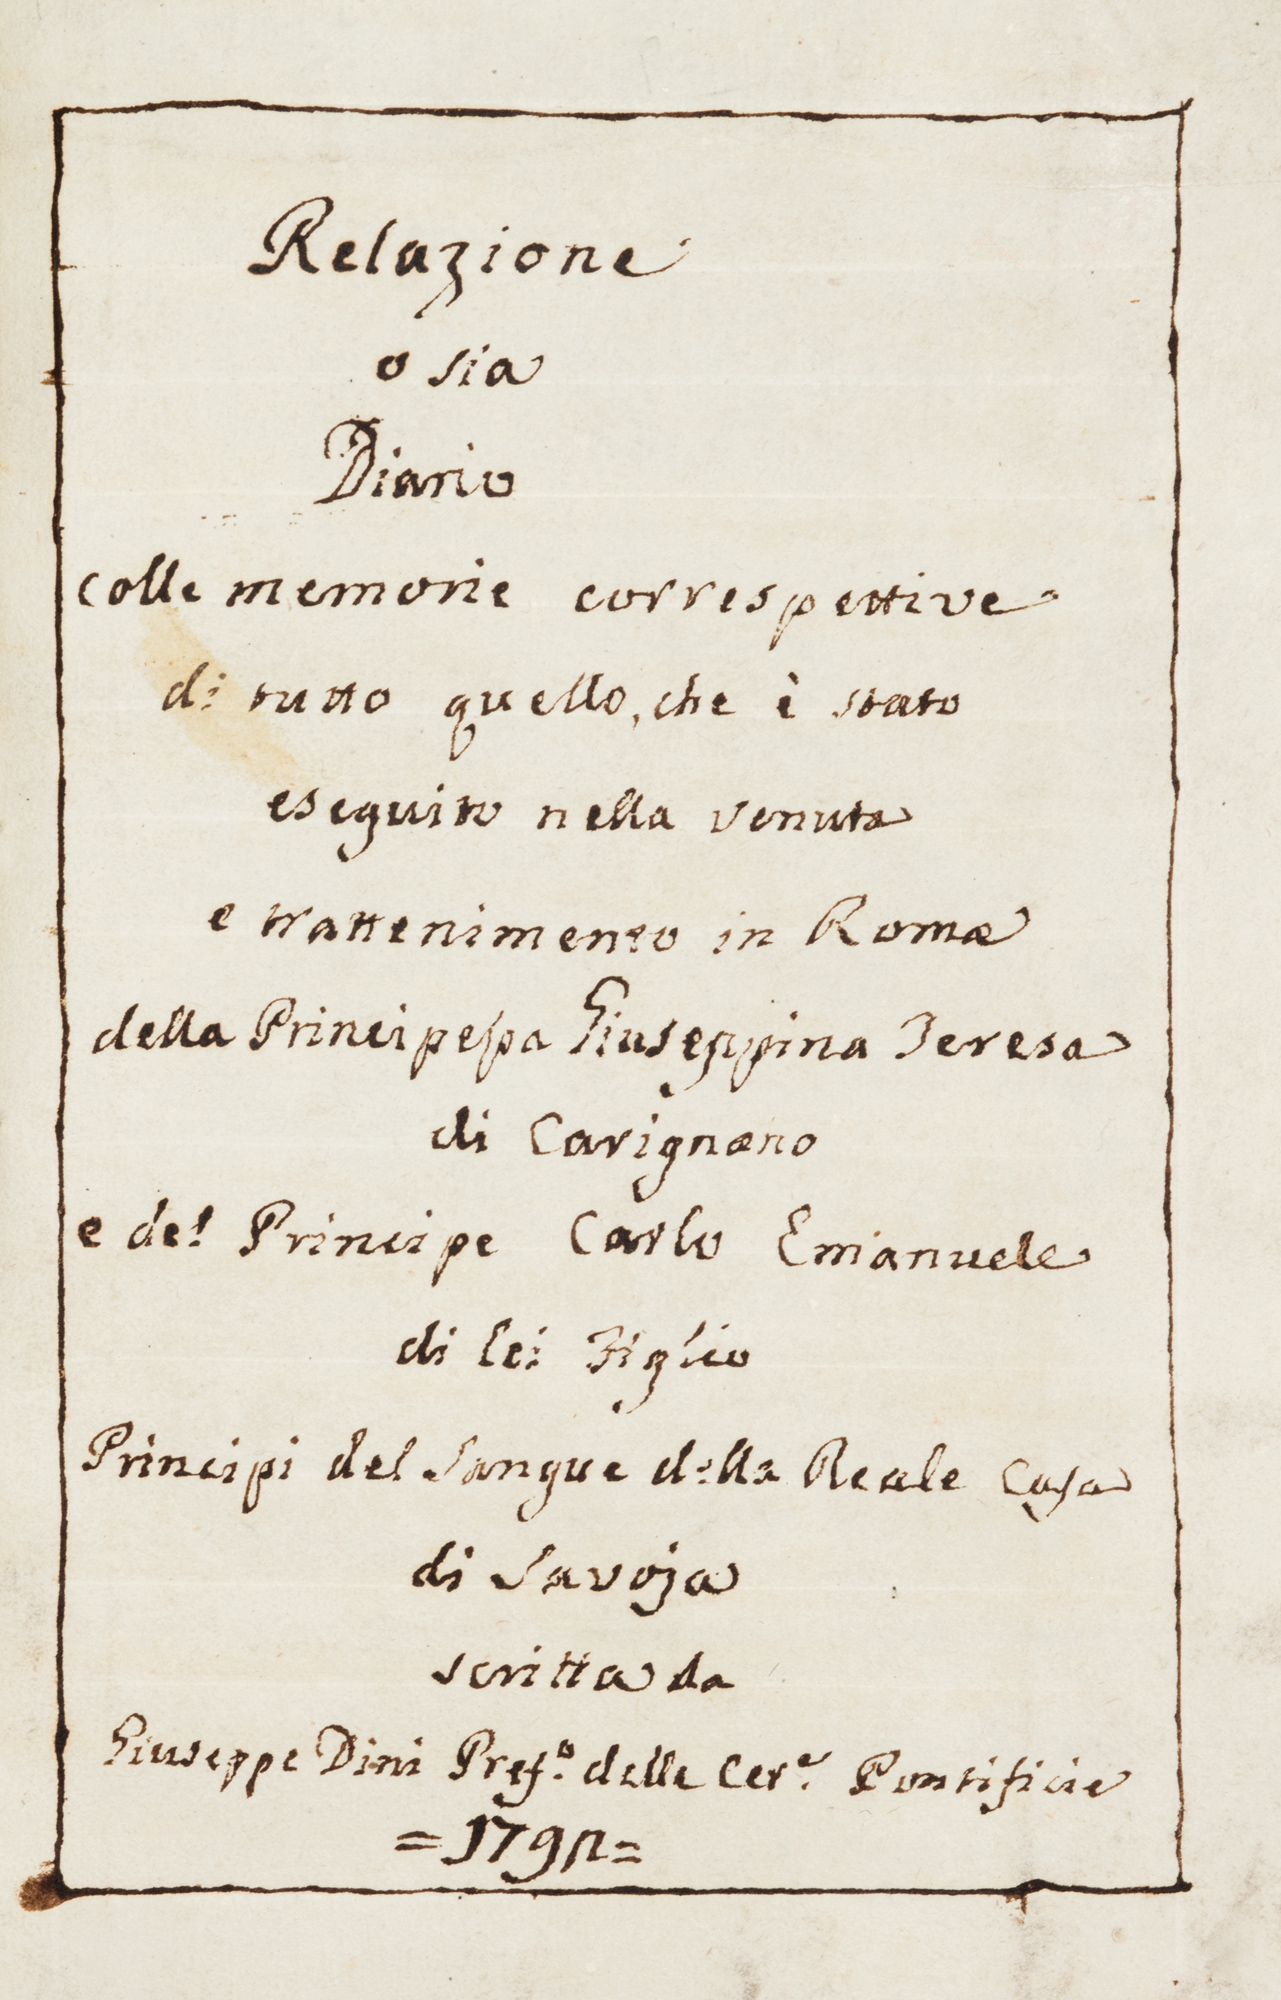 Relazione
o sia
Diario
colle memorie correspettive
di tutto quello, che è stato
eseguito nella venuta
e trattenimento in Roma
della Principessa Giuseppina Teresa
di Carignano
e del Principe Carlo Emanuele
di lei Figlio
Principi del Sangue della Reale Casa
di Savoja
scritta da
Giuseppe Dini Pref.º delle Cer.e Pontificie